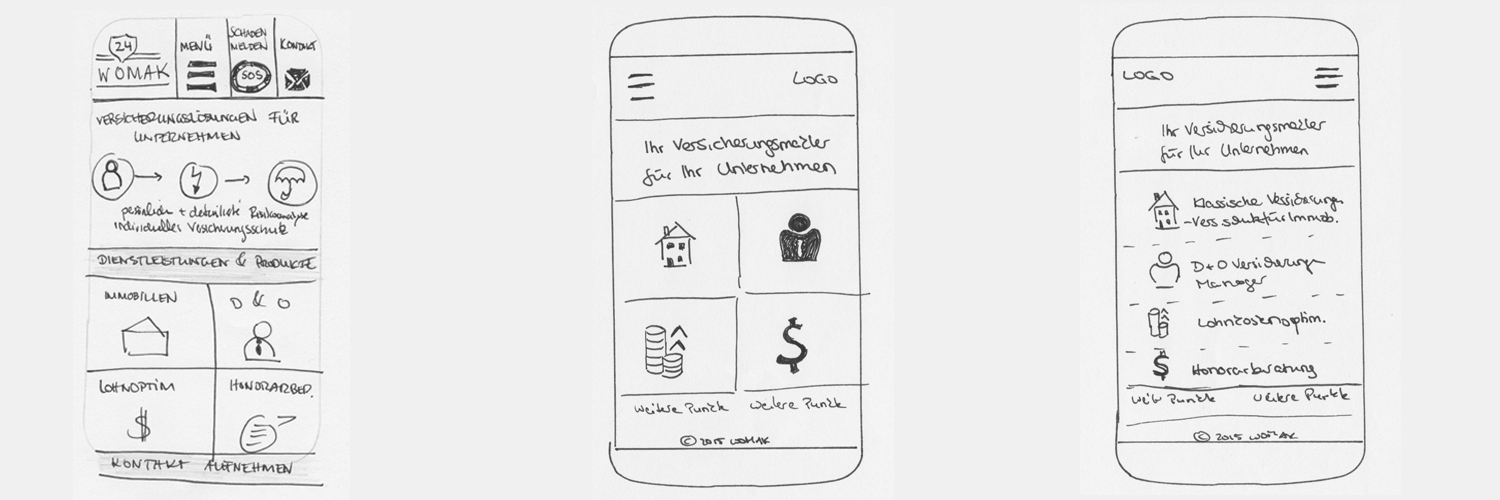 24
WOMAK
MENÜ
SCHADEN
MELDEN
SOS
KONTAKT
VERSICHERUNGSLÖSUNGEN FÜR
UNTERNEHMEN
persönlich + detaillierte Risikoanalyse
individueller Versicherungsschutz
DIENSTLEISTUNGEN & PRODUKTE
IMMOBILIEN
D & O
LOHNOPTIM
HONORARBER.
KONTAKT AUFNEHMEN
LOGO
Ihr Versicherungsmakler
für Ihr Unternehmen
$
weitere Punkte
weitere Punkte
© 2015 WOMAK
LOGO
Ihr Versicherungsmakler
für Ihr Unternehmen
Klassische Versicherungen
für Immob.
D+O Versicherung
Manager
Lohnkostenoptim.
$ Honorarberatung
Punkte
weitere Punkte
© 2015 WOMAK